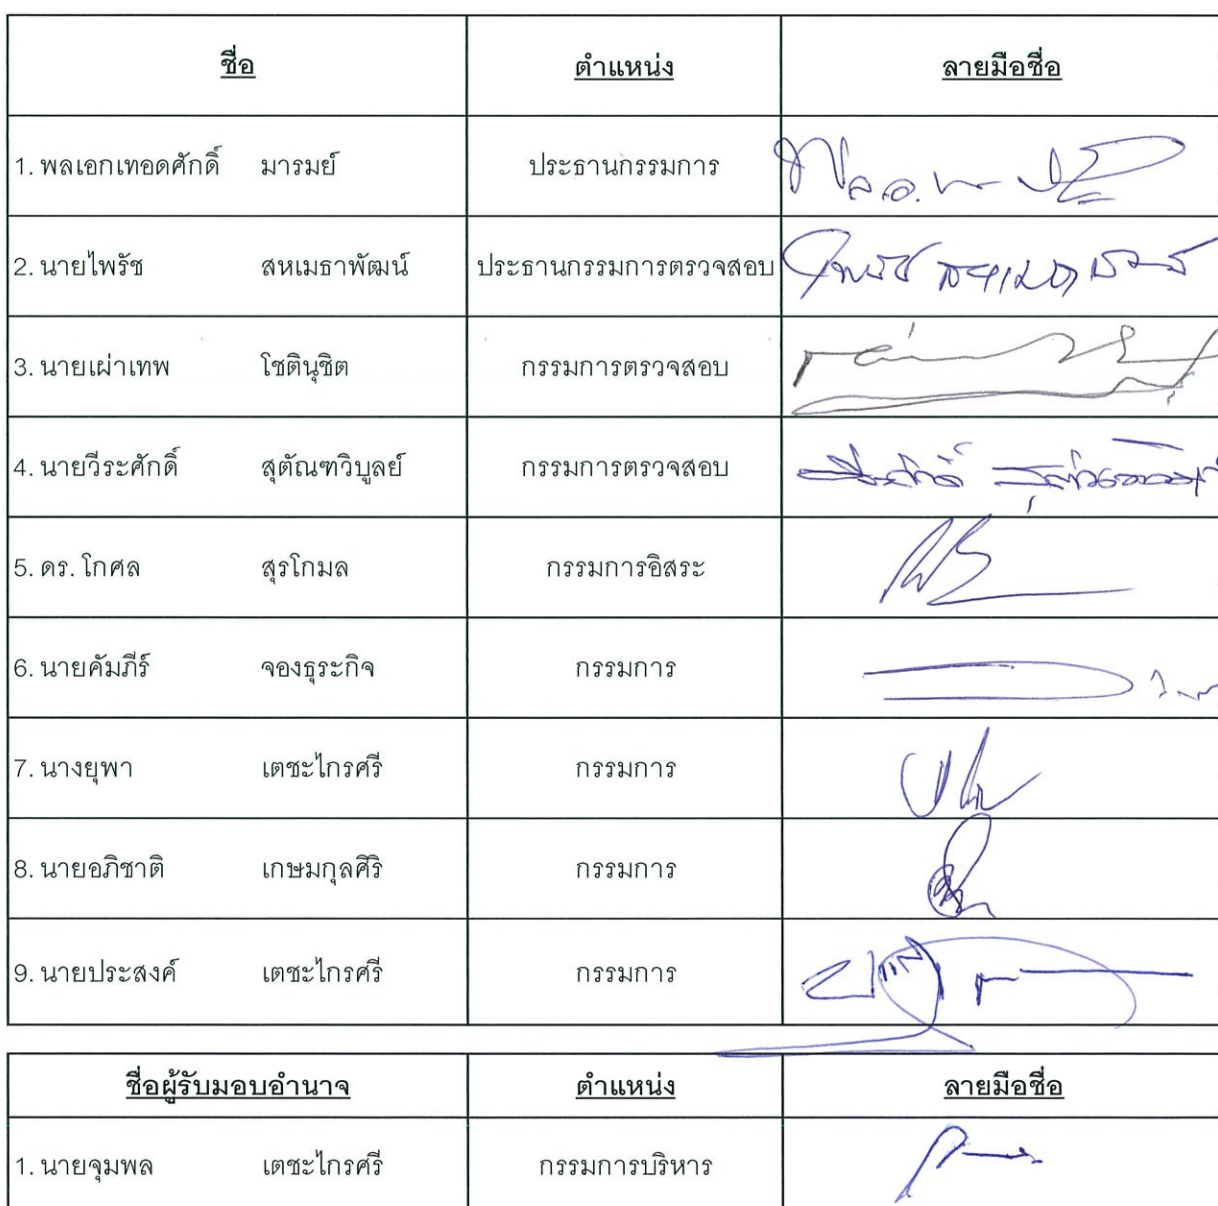 ชื่อ ตำแหน่ง ลายมือชื่อ
1. พลเอกเทอดศักดิ์ มารมย์ ประธานกรรมการ
2. นายไพรัช สหเมธาพัฒน์ ประธานกรรมการตรวจสอบ
3. นายเผ่าเทพ โชตินุชิต กรรมการตรวจสอบ
4. นายวีระศักดิ์ สุตัณฑวิบูลย์ กรรมการตรวจสอบ
5. ดร. โกศล สุรโกมล กรรมการอิสระ
6. นายคัมภีร์ จองธุระกิจ กรรมการ
7. นางยุพา เตชะไกรศรี กรรมการ
8. นายอภิชาติ เกษมกุลศิริ กรรมการ
9. นายประสงค์ เตชะไกรศรี กรรมการ
ชื่อผู้รับมอบอำนาจ ตำแหน่ง ลายมือชื่อ
1. นายจุมพล เตชะไกรศรี กรรมการบริหาร